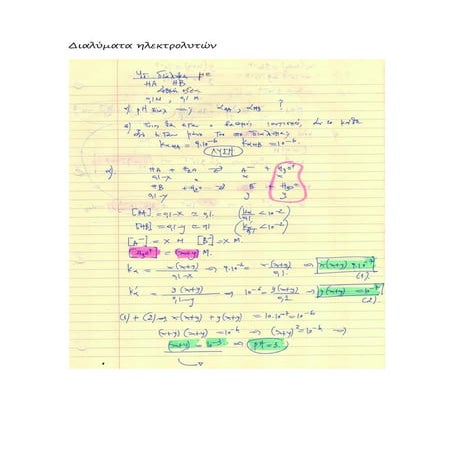 Διαλύματα ηλεκτρολυτών
Υδ. διάλυμα με
HA, HB
ασθενή οξέα
0,1 M, 0,1 M.
α) pH διαλ → αHA, αHB ?
KαHA = 9.10⁻⁶ KαHB = 10⁻⁶.
ΛΥΣΗ
α) HA + H₂O ⇌ A⁻ + H₃O⁺
0,1-x x x
HB + H₂O ⇌ B⁻ + H₃O⁺
0,1-y y y
[HA] = 0,1-x ≃ 0,1. (Kα/0,1 < 10⁻²)
[HB] = 0,1-y ≃ 0,1 (K'α/0,1 < 10⁻²)
[A⁻] = x M [B⁻] = y M.
[H₃O⁺] = (x+y) M.
Kα = x(x+y)/0,1-x ⇒ 9.10⁻⁶ = x(x+y)/0,1 ⇒ x(x+y) = 9.10⁻⁷ (1).
K'α = y(x+y)/0,1-y ⇒ 10⁻⁶ = y(x+y)/0,1 ⇒ y(x+y) = 10⁻⁷ (2).
(1) + (2) ⇒ x(x+y) + y(x+y) = 10.10⁻⁷ = 10⁻⁶
(x+y)(x+y) = 10⁻⁶ ⇒ (x+y)² = 10⁻⁶ ⇒
(x+y) = 10⁻³ ⇒ pH = 3